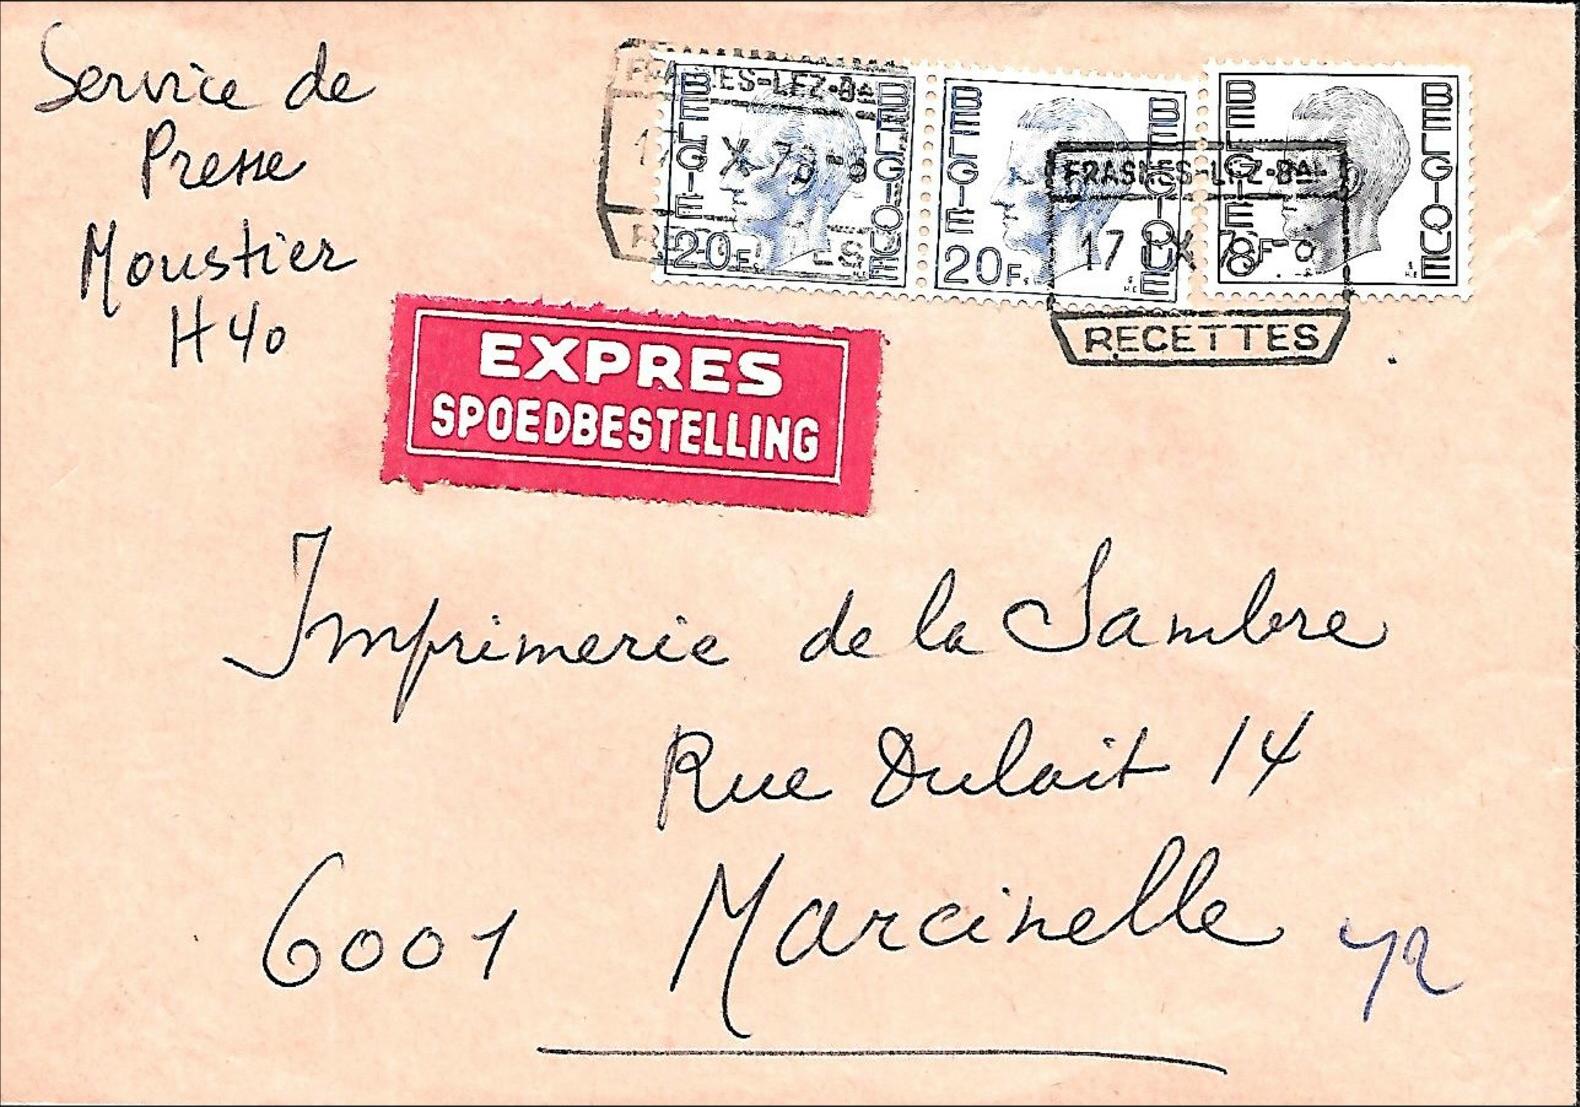 Service de
Presse
Moustier
H 40
FRASNES-LEZ-BAL
BELGIE BELGIQUE
20F
BELGIE BELGIQUE
20F
BELGIE BELGIQUE
8F
FRASNES-LEZ-BAL
RECETTES
EXPRES
SPOEDBESTELLING
Imprimerie de la Sambre
Rue Dulait 14
6001 Marcinelle